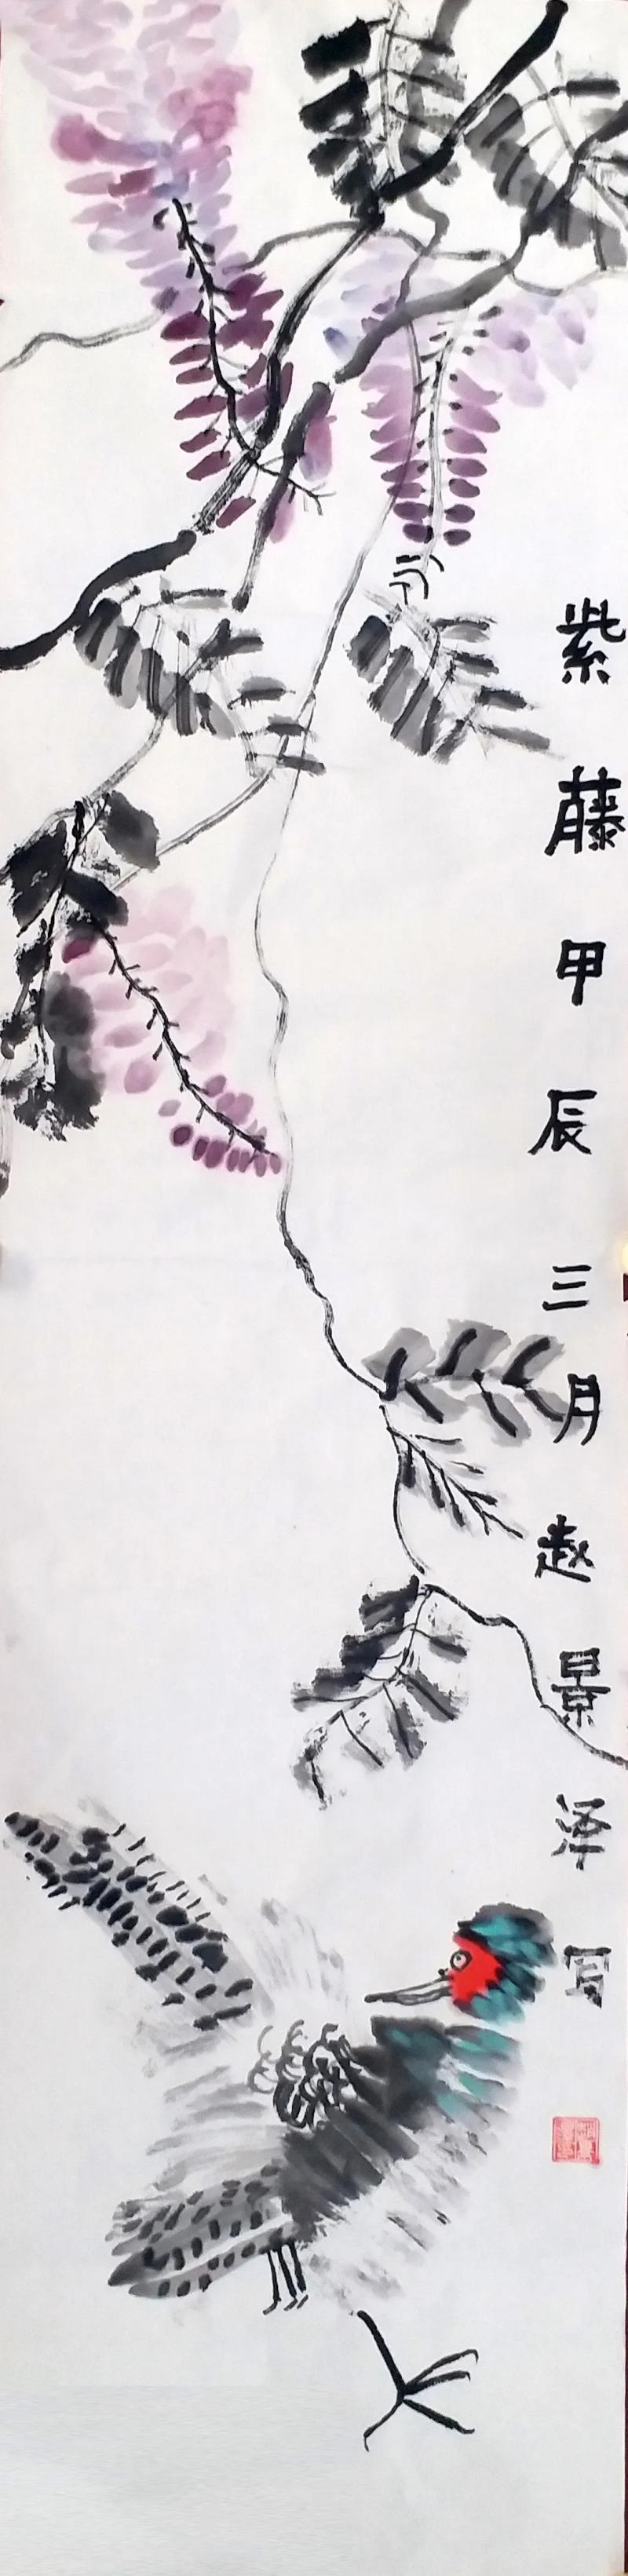 紫藤甲辰三月赵景泽写